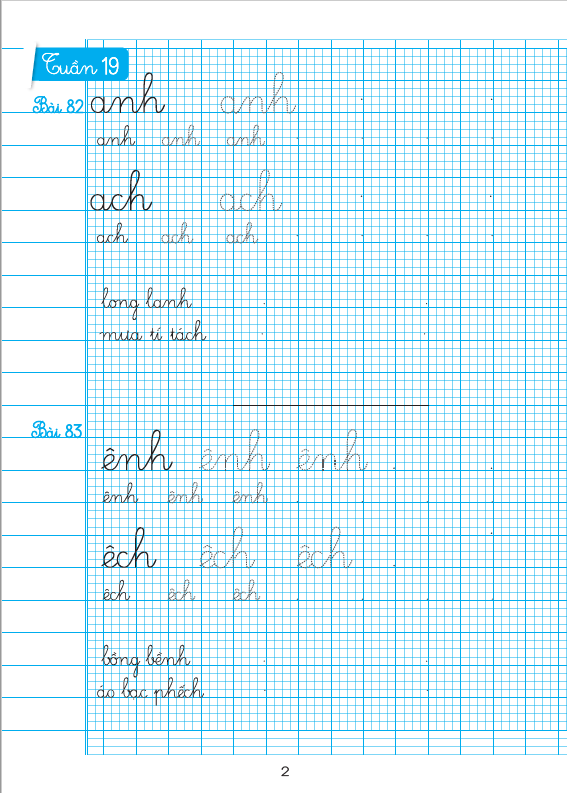 Tuần 19
Bài 82
anh anh
anh anh anh
ach ach
ach ach ach
long lanh
mưa tí tách
Bài 83
ênh ênh ênh
ênh ênh ênh
êch êch êch
êch êch êch
bồng bềnh
áo bạc phếch
2